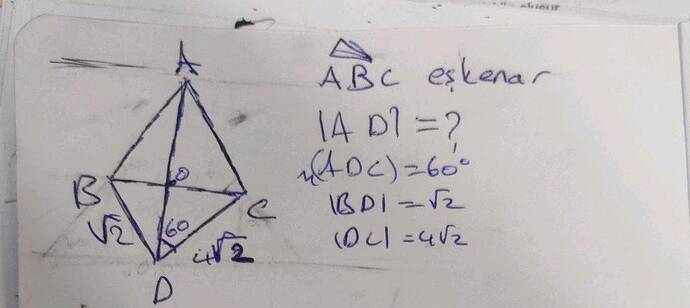 A
B
O
C
√2
60
4√2
D
ABC eşkenar
|AD| = ?
m(ADC) = 60°
|BD| = √2
|DC| = 4√2